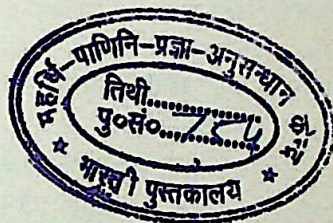 महर्षि-पाणिनि-प्रज्ञा-अनुसन्धान
तिथी..............
पु०सं०.............
भारती पुस्तकालय